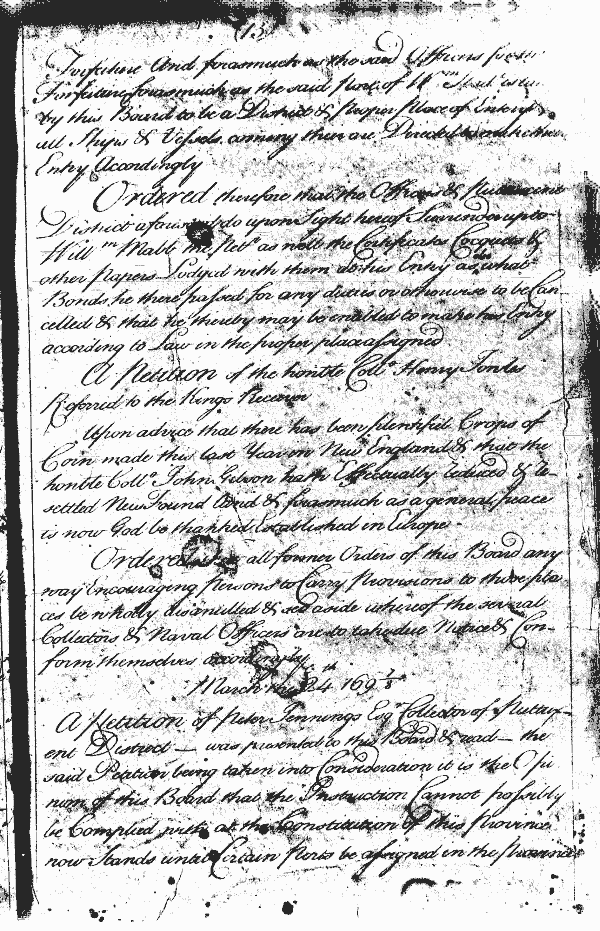 (13)
Forfeiture And forasmuch as the said Officers
Forfeiture forasmuch as the said Port of
by this Board to be a District & proper place of Entery
all Ships & Vessels coming there are Directed to make their
Entry Accordingly
Ordered therefore that the Officers
District aforesaid do upon Sight hereof Surrender up to
Will m as well the Certificates Cocquetts &
other Papers Lodged with them as his Entry as what
Bonds he there passed for any duties or otherwise to be Can
celled & that he thereby may be enabled to make his Entry
according to Law in the proper place assigned
A Petition of the honble Coll o Henry Jowles
Referred to the Kings Receiver
Upon advice that there has been plentiful Crops of
Corn made this last Year in New England & that the
honble Coll o John Gibson hath Effectually reduced & re
settled New Found Land & forasmuch as a general peace
is now God be thanked Established in Europe -
Ordered all former Orders of this Board any
way Encouraging Persons to Carry Provisions to those pla
ces be wholly disanulled & set aside whereof the several
Collectors & Naval Officers are to take due Notice & Con-
form themselves accordingly
March the 24 th 169 7/8
A Petition of Peter Jennings Esq r Collector of Pattux-
ent District — was presented to this Board & read — the
said Petition being taken into Consideration it is the Opi
nion of this Board that the Instruction Cannot possibly
be Complied with as the Constitution of this Province
now Stands until Certain Ports be assigned in the Province